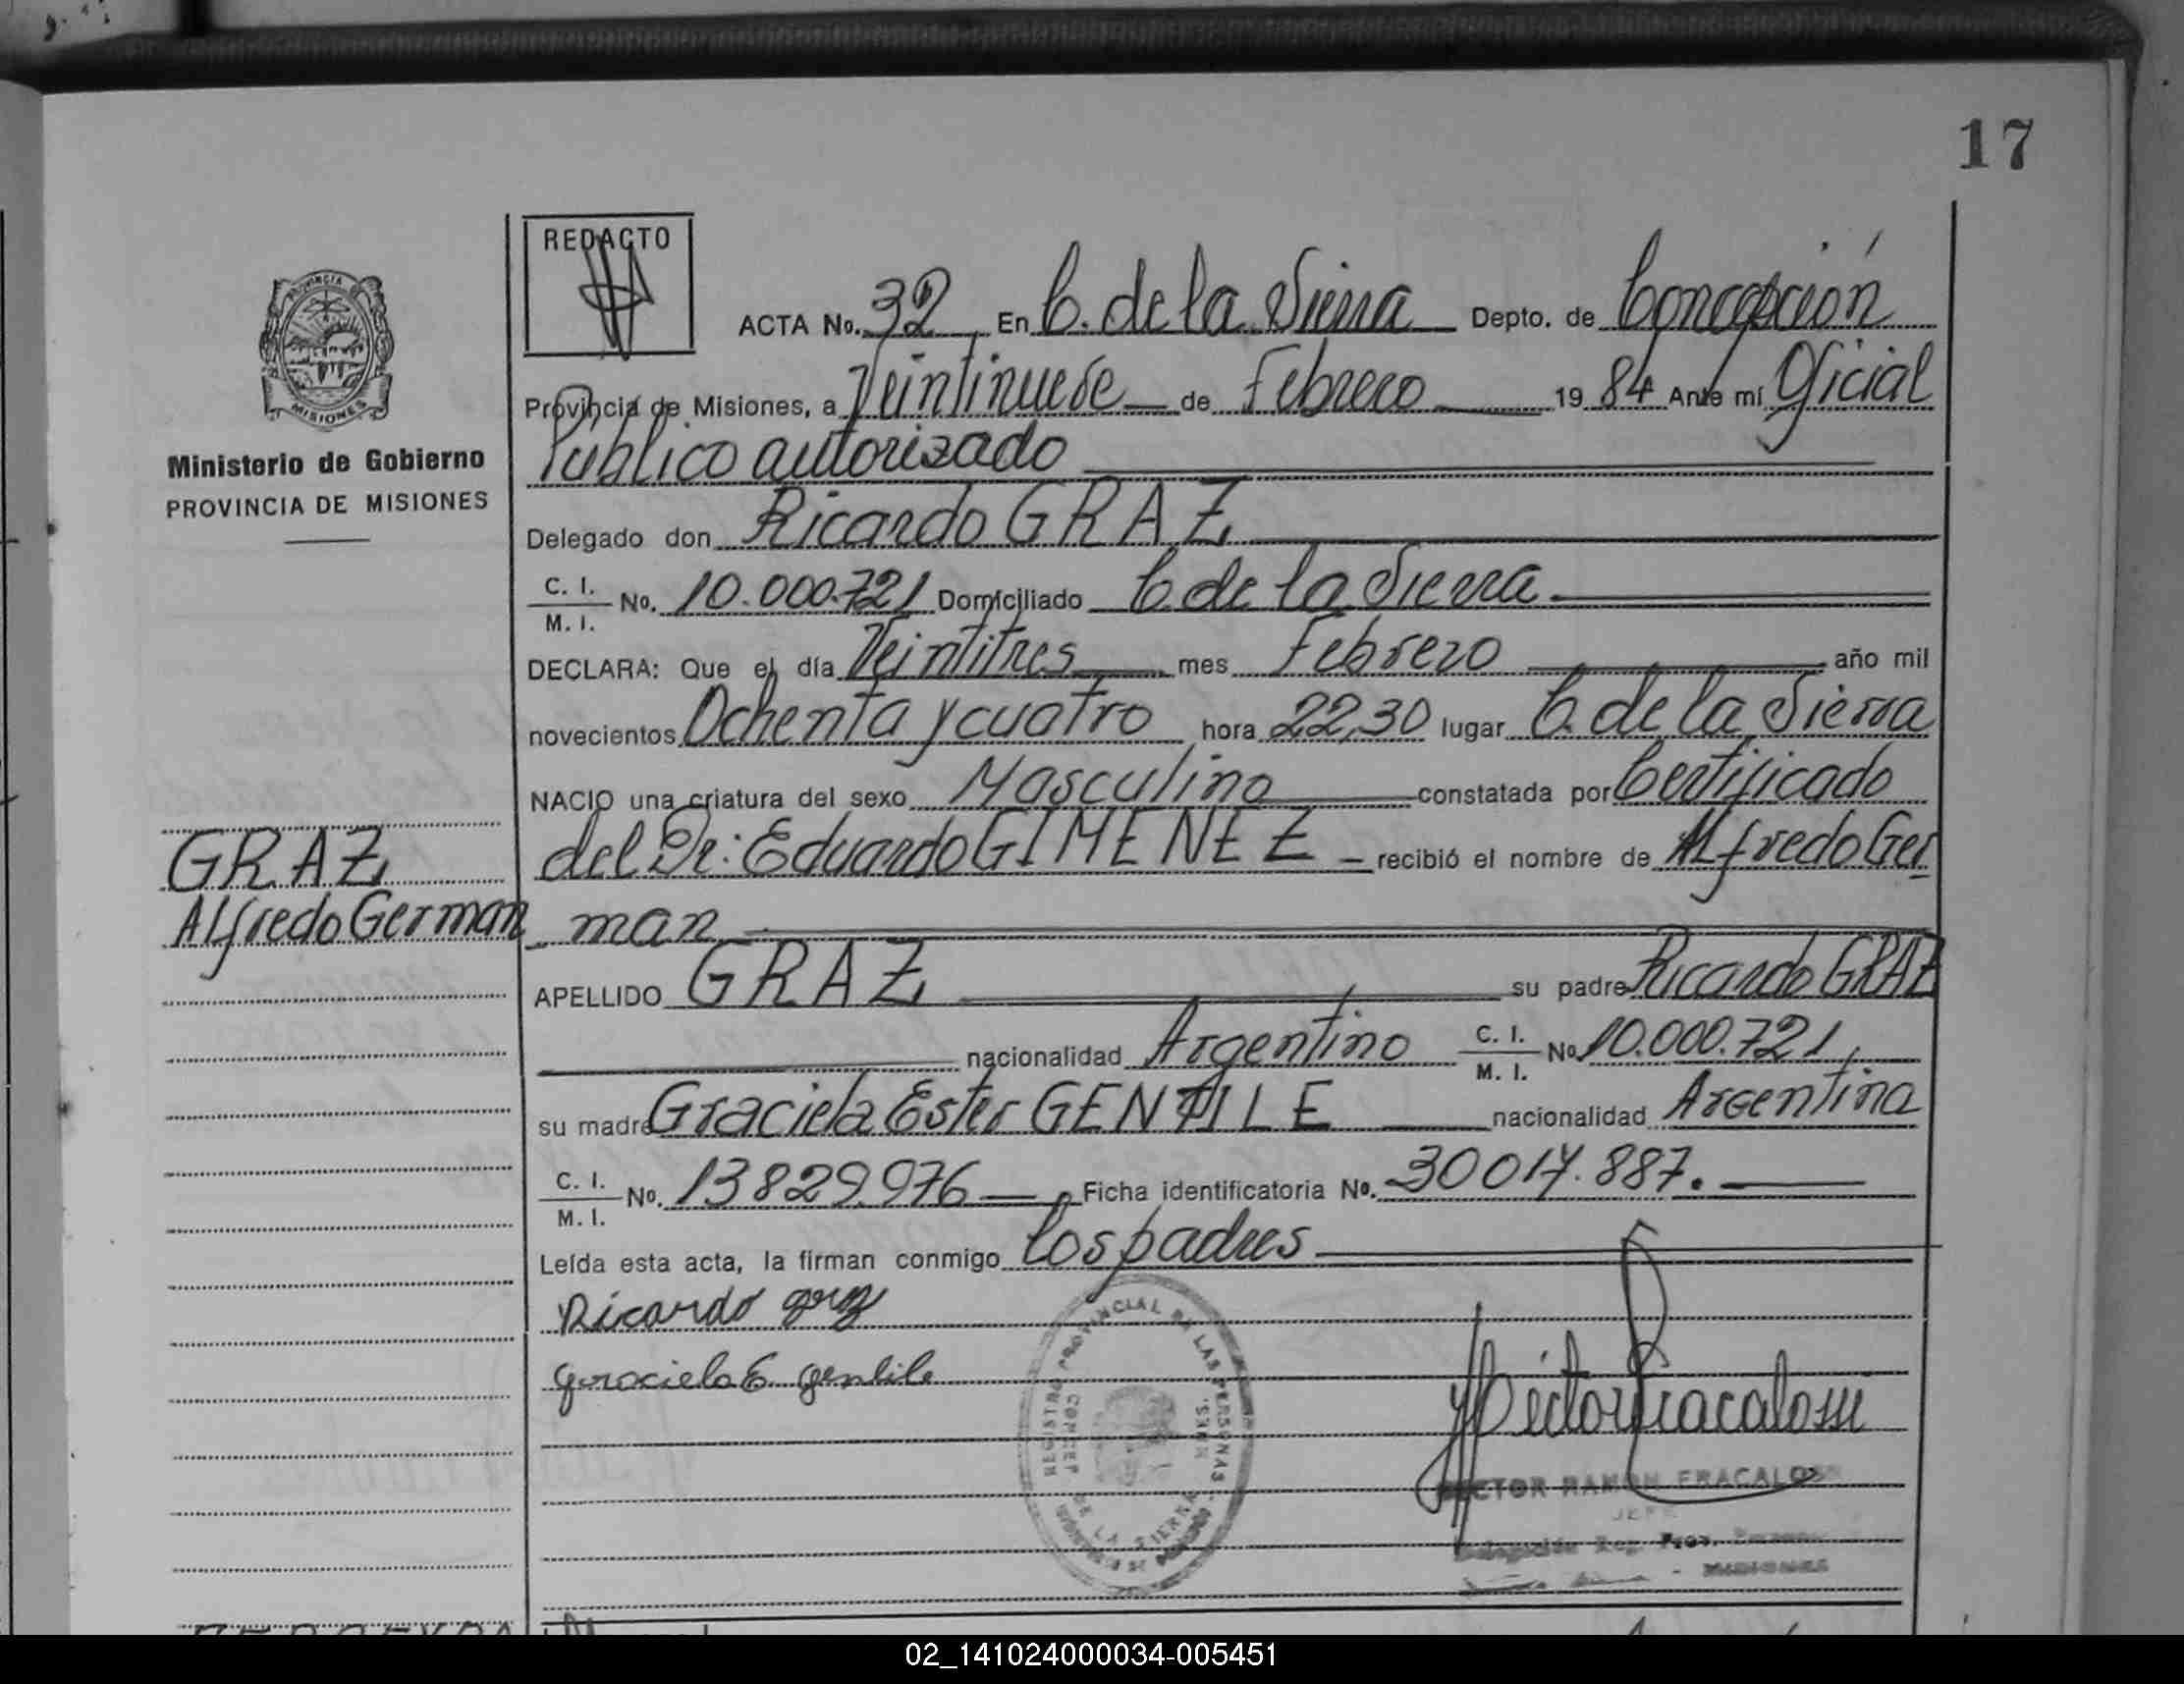 17
REDACTO
ACTA No. 32 En C. de la Sierra Depto. de Concepción
Provincia de Misiones, a Veintinueve de Febrero 1984 Ante mí Oficial
Publico autorizado
Ministerio de Gobierno
PROVINCIA DE MISIONES
Delegado don Ricardo GRAZ
C. I.
M. I. No. 10.000.721 Domiciliado C. de la Sierra
DECLARA: Que el día Veintitres mes Febrero año mil
novecientos Ochenta y cuatro hora 22,30 lugar C. de la Sierra
NACIO una criatura del sexo Masculino constatada por Certificado
del Dr: Eduardo GIMENEZ recibió el nombre de Alfredo Ger
man
GRAZ
Alfredo German
APELLIDO GRAZ su padre Ricardo GRAZ
nacionalidad Argentino C. I.
M. I. No 10.000.721
su madre Graciela Ester GENTILE nacionalidad Argentina
C. I.
M. I. No. 13829.976 Ficha identificatoria No. 30017.887.
Leída esta acta, la firman conmigo los padres
Ricardo graz
graciela E. gentile
REGISTRO PROVINCIAL DE LAS PERSONAS
DE LA SIERRA
Héctor Fracalossi
HECTOR RAMON FRACALOSSI
JEFE
Delegación Reg. Prov.
MISIONES
02_141024000034-005451